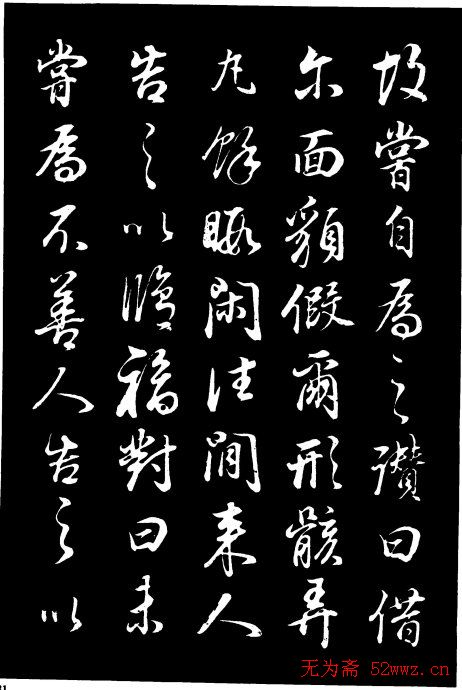 故嘗自為之讚曰借
尔面貌假爾形骸弄
丸餘暇閑往閒來人
告之以脩福對曰未
嘗為不善人告之以
无为斋 52wwz.cn